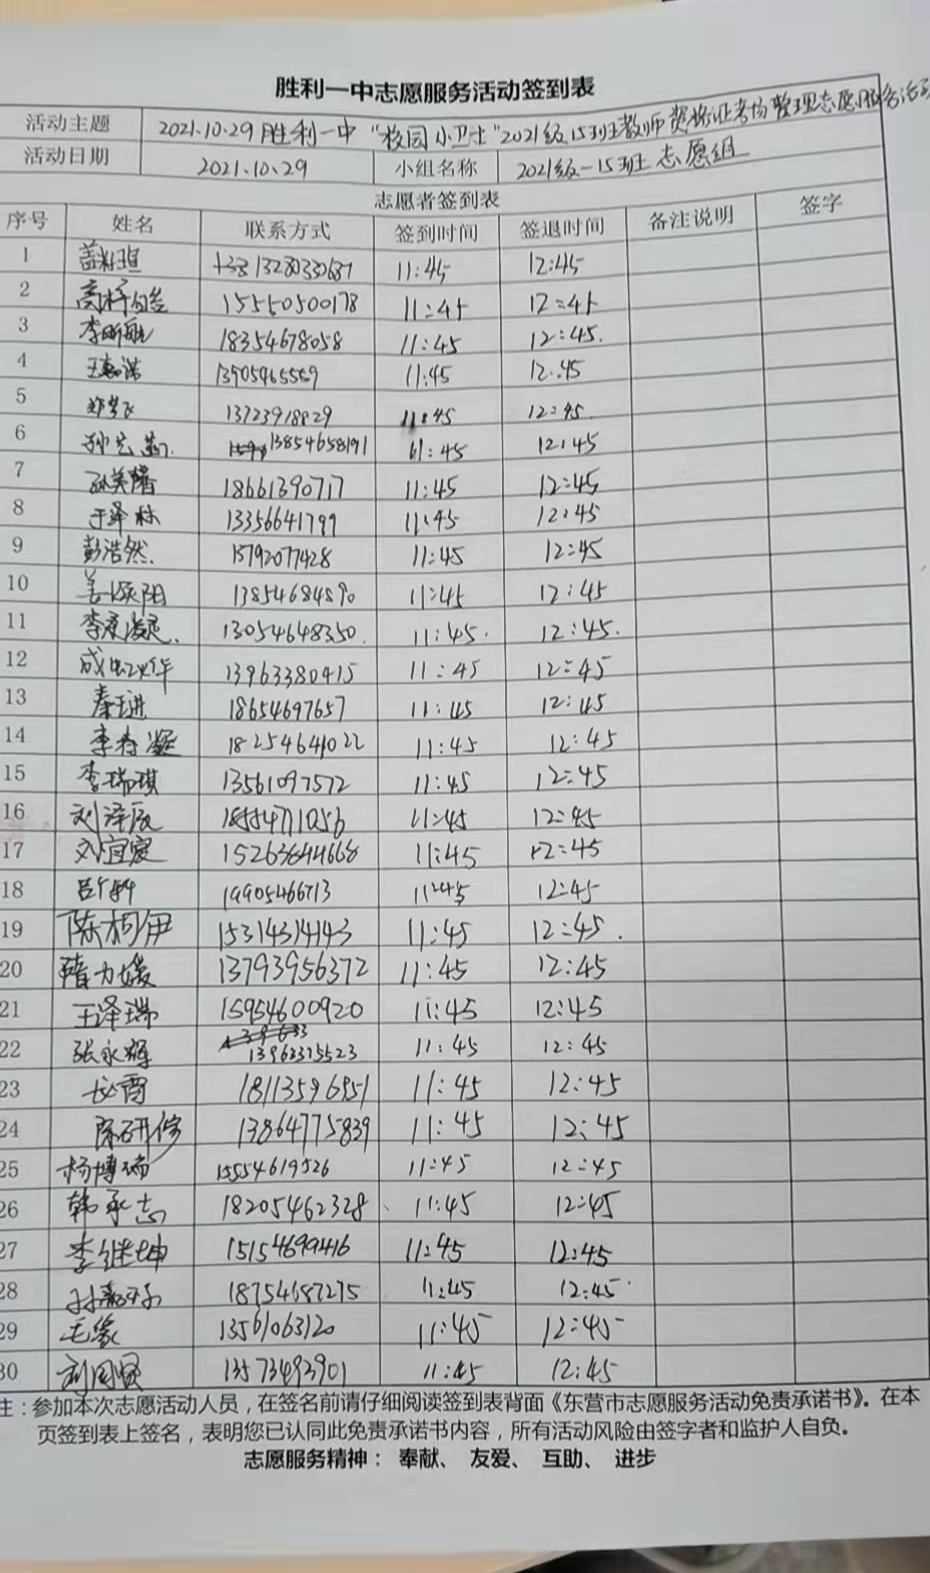 胜利一中志愿服务活动签到表
活动主题 2021.10.29胜利一中“校园小卫士”2021级15班教师资格证考场整理志愿服务活动
活动日期 2021.10.29 小组名称 2021级-15班志愿组
志愿者签到表
序号 姓名 联系方式 签到时间 签退时间 备注说明 签字
1 11:45 12:45
2 15550500178 11:45 12:45
3 18354678058 11:45 12:45.
4 11:45 12:45
5 11:45 12:45
6 13854658191 11:45 12:45
7 孙美馨 18661390717 11:45 12:45
8 于泽林 13356641799 11:45 12:45
9 彭浩然 15792077428 11:45 12:45
10 13854684890 11:45 12:45
11 13054648350 11:45 12:45.
12 13963380415 11:45 12:45
13 18654697657 11:45 12:45
14 18254641022 11:45 12:45
15 李瑞琪 13561097572 11:45 12:45
16 刘泽辰 18554711056 11:45 12:45
17 刘宜宸 15263644668 11:45 12:45
18 19905466713 11:45 12:45
19 陈柯伊 15314314143 11:45 12:45.
20 13793956372 11:45 12:45
21 王泽瑞 15954600920 11:45 12:45
22 张永辉 13963375523 11:45 12:45
23 18113596951 11:45 12:45
24 陈研修 13864775839 11:45 12:45
25 杨博瑞 15554619526 11:45 12:45
26 韩承志 18205462328 11:45 12:45
27 李继坤 15154699416 11:45 12:45
28 18754687275 11:45 12:45
29 毛缘 13561063120 11:45 12:45
30 刘国贤 13573493901 11:45 12:45
注：参加本次志愿活动人员，在签名前请仔细阅读签到表背面《东营市志愿服务活动免责承诺书》。在本
页签到表上签名，表明您已认同此免责承诺书内容，所有活动风险由签字者和监护人自负。
志愿服务精神： 奉献、 友爱、 互助、 进步